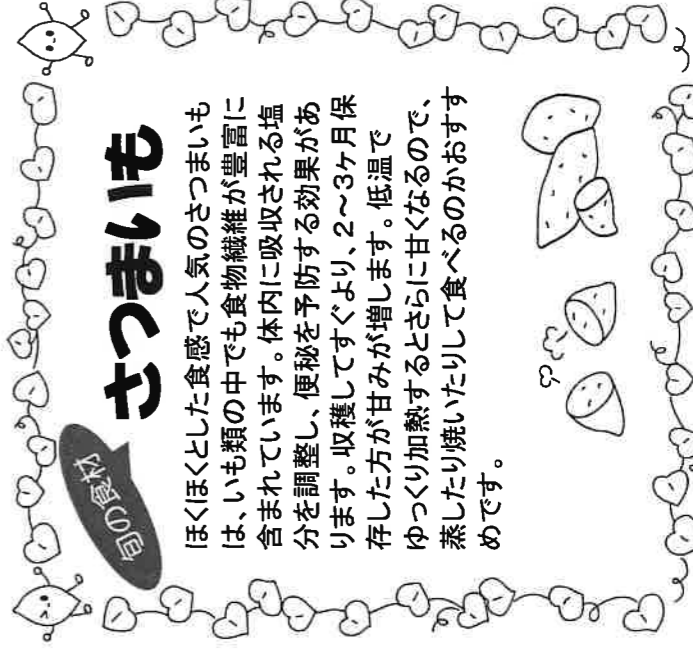 旬の食材
さつまいも
ほくほくとした食感で人気のさつまいも
は、いも類の中でも食物繊維が豊富に
含まれています。体内に吸収される塩
分を調整し、便秘を予防する効果があ
ります。収穫してすぐより、2～3ヶ月保
存した方が甘みが増します。低温で
ゆっくり加熱するとさらに甘くなるので、
蒸したり焼いたりして食べるのかおすす
めです。